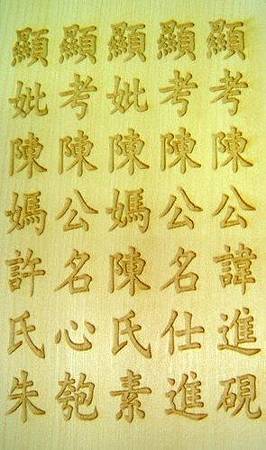 顯考陳公諱進硯
顯考陳公名仕進
顯妣陳媽陳氏素
顯考陳公名心匏
顯妣陳媽許氏朱